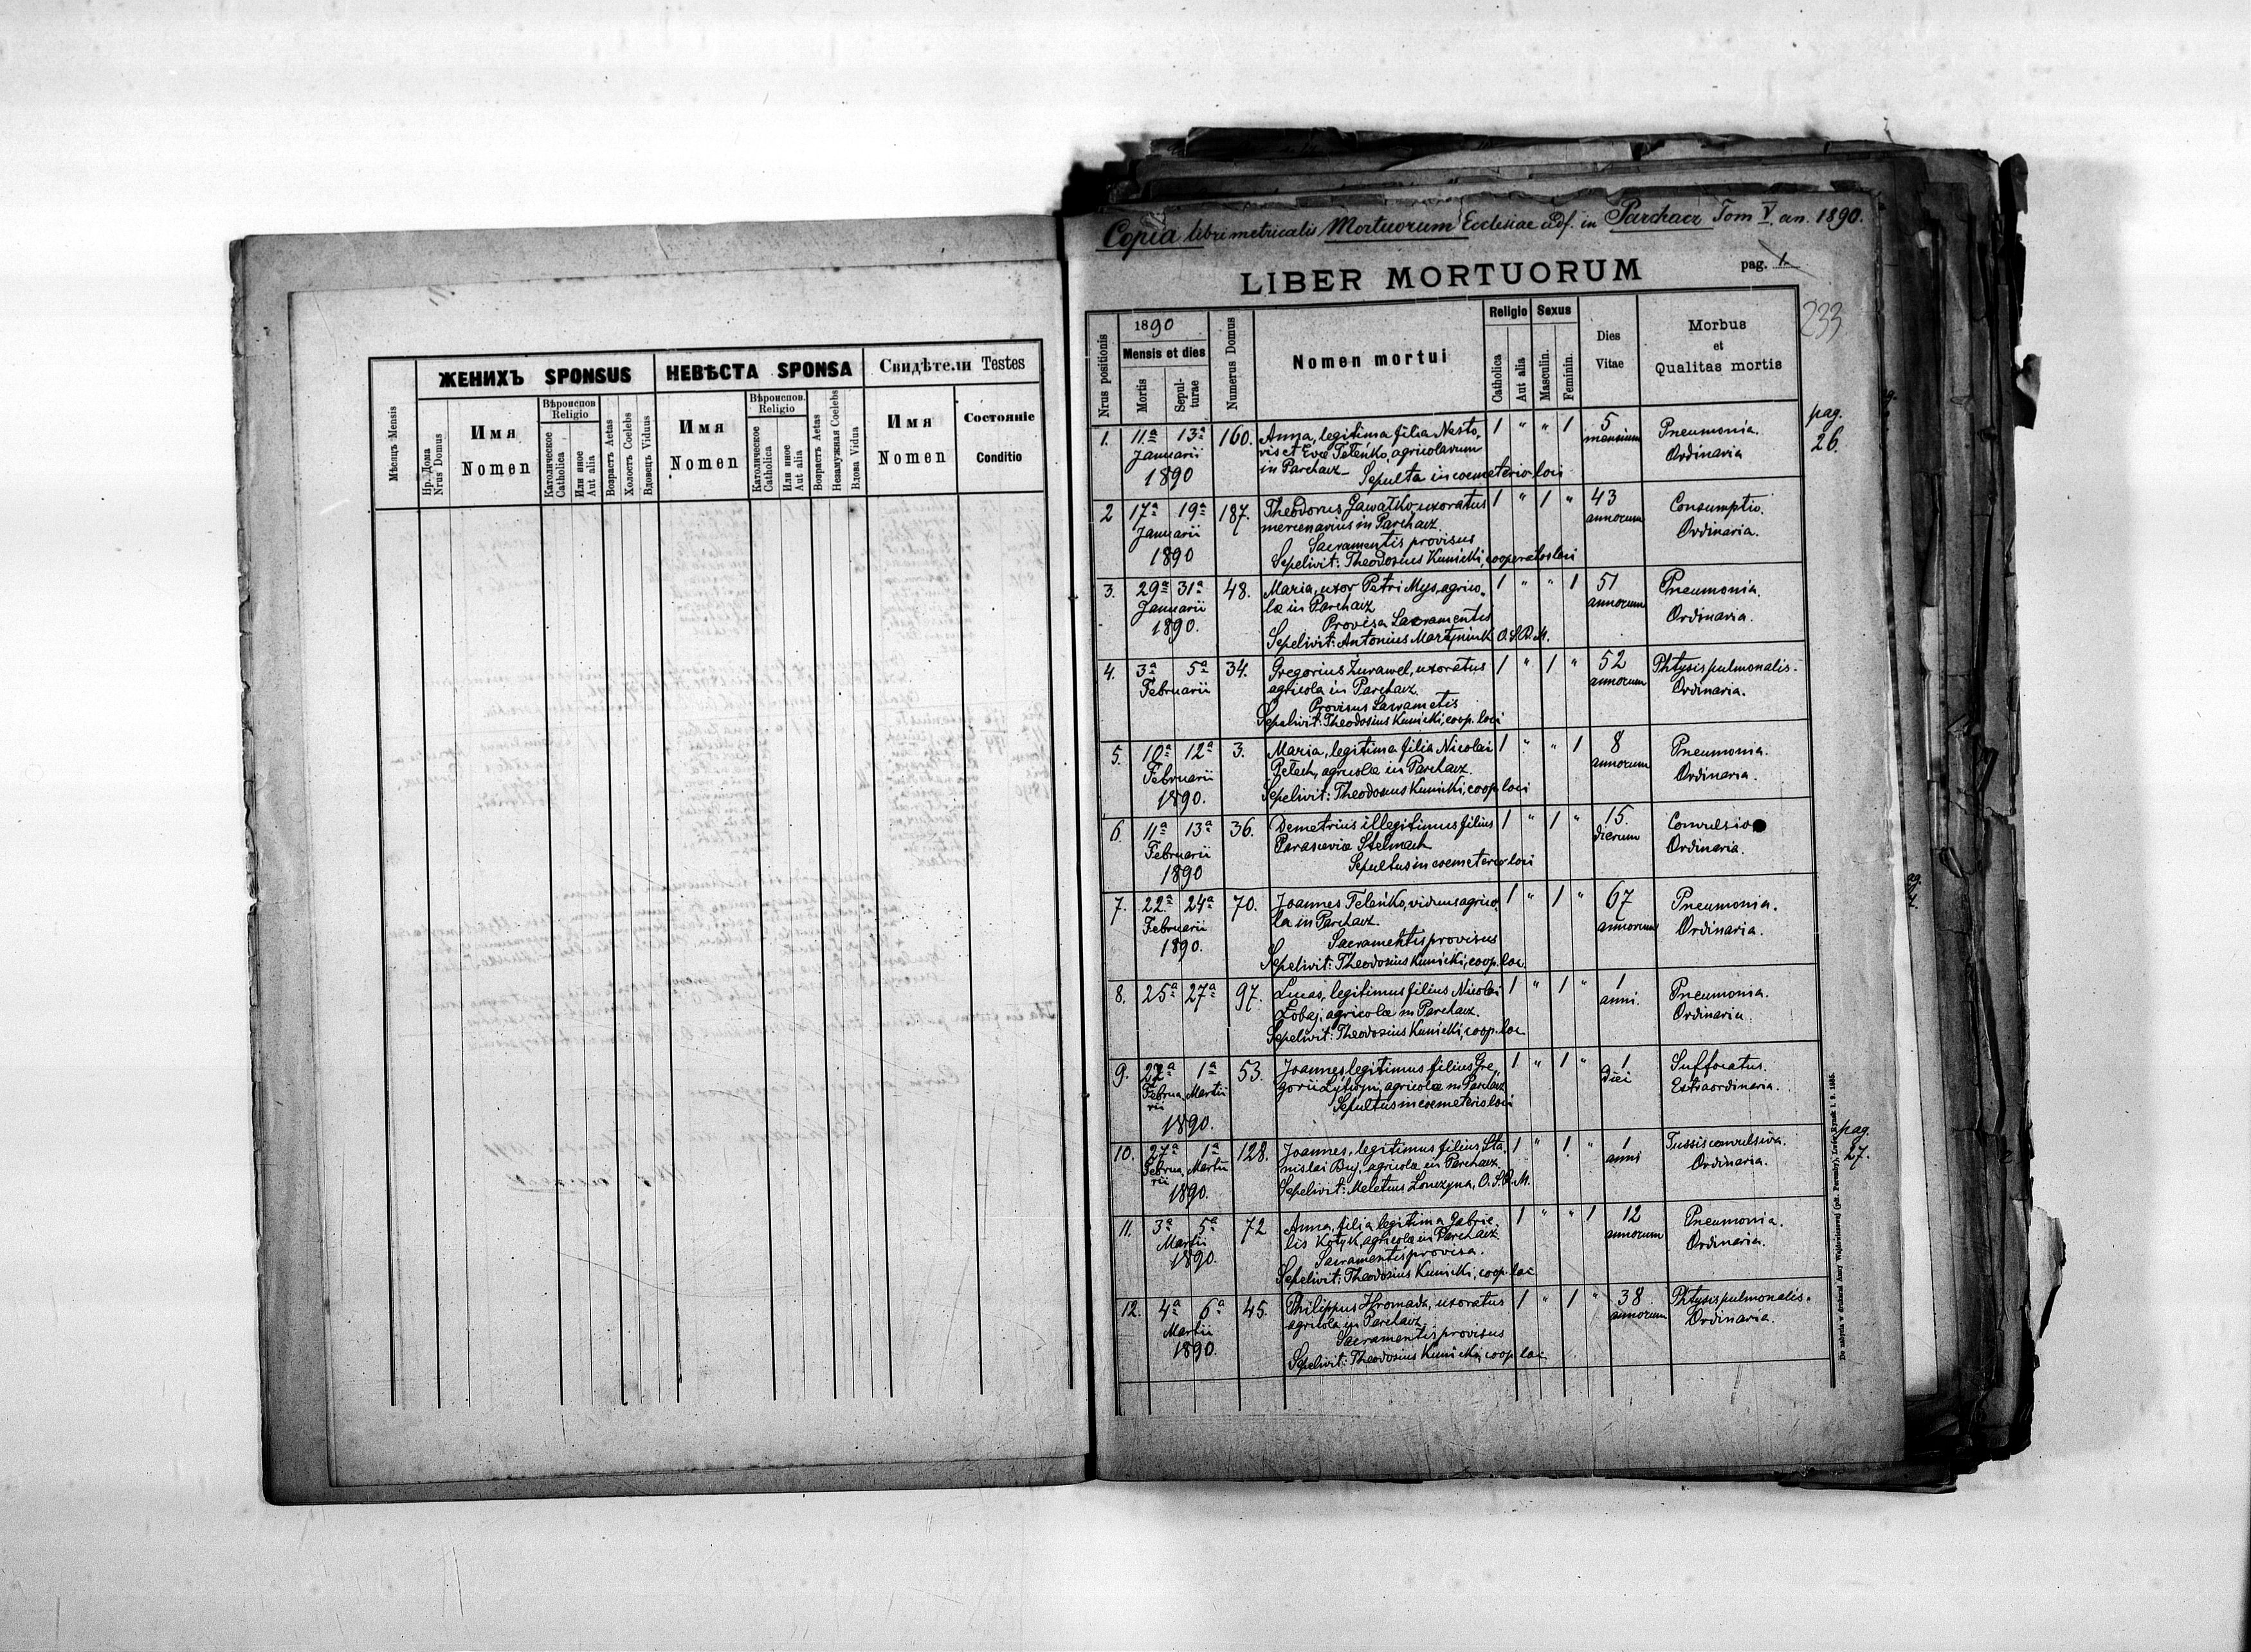 ЖЕНИХЪ SPONSUS
НЕВѢСТА SPONSA
Свидѣтели Testes
Мѣсяцъ Mensis
Нр. Дома
Nrus Domus
Имя
Nomen
Вѣроиспов.
Religio
Католическое
Catholica
Или иное
Aut alia
Возрастъ Aetas
Холостъ Coelebs
Вдовецъ Viduus
Имя
Nomen
Вѣроиспов.
Religio
Католическое
Catholica
Или иное
Aut alia
Возрастъ Aetas
Незамужная Coelebs
Вдова Vidua
Имя
Nomen
Состояніе
Conditio
Copia libri metricalis Mortuorum Ecclesiae adf. in Parchacz Tom V. an. 1890.
LIBER MORTUORUM
pag. 1
233
Nrus positionis
1890
Mensis et dies
Mortis
Sepul-
turae
Numerus Domus
Nomen mortui
Religio
Catholica
Aut alia
Sexus
Masculin.
Feminin.
Dies
Vitae
Morbus
et
Qualitas mortis
pag.
26.
1. 11a 13a 160. Anna, legitima filia Nesto- 1 " " 1 5 Pneumonia.
Januarii vis et Evæ Teleńko, agricolarum mensium Ordinaria
1890 in Parchacz Sepulta in coemeterio loci
2 17a 19a 187. Theodorus Gawałko, uxoratus 1 " 1 " 43 Consumptio.
Januarii mercenarius in Parchacz. annorum Ordinaria.
Sacramentis provisus
1890 Sepelivit: Theodosius Kunicki, cooperator loci
3. 29a 31a 48. Maria, uxor Petri Mys, agrico- 1 " " 1 51 Pneumonia.
Januarii læ in Parchacz annorum Ordinaria.
1890. Provisa Sacramentis
Sepelivit: Antonius Martyniuk O.S.B.M.
4. 3a 5a 34. Gregorius Żurawel, uxoratus 1 " 1 " 52 Phtysis pulmonalis.
Februarii agricola in Parchacz. annorum Ordinaria.
Provisus Sacrametis
Sepelivit: Theodosius Kunicki, coop. loci
5. 10a 12a 3. Maria, legitima filia Nicolai 1 " " 1 8 Pneumonia.
Februarii agricolæ in Parchacz. annorum Ordinaria.
1890. Sepelivit: Theodosius Kunicki, coop. loci
6 11a 13a 36. Demetrius illegitimus filius 1 " 1 " 15. Convulsio
Februarii Parasceviæ Stelmach dierum Ordinaria.
1890 Sepultus in coemeterio loci
7. 22a 24a 70. Joannes Teleńko, viduus agrico- 1 " 1 " 67 Pneumonia.
Februarii la in Parchacz. annorum Ordinaria.
1890. Sacramentis provisus
Sepelivit: Theodosius Kunicki, coop. loc.
8. 25a 27a 97. Lucas, legitimus filius Nicolai 1 " 1 " 1 Pneumonia.
Łobaj, agricolæ in Parchacz. anni. Ordinaria.
Sepelivit: Theodosius Kunicki, coop. loc
9. 1a 53. Joannes, legitimus filius Gre- 1 " 1 " 1 Suffocatus.
Februa- Martii gorii agricolæ in Parchacz diei Extraordinaria.
rii Sepultus in coemeterio loci
1890.
pag.
27.
10. 27a 1a 128. Joannes, legitimus filius Sta- 1 " 1 " 1 Tussis convulsiva.
Februa- Martii nislai Buj, agricolæ in Parchacz anni Ordinaria.
rii Sepelivit: Meletius Łonczyna, O.S.B.M.
1890.
11. 3a 5a 72 Anna, filia legitima Gabrie- 1 " " 1 12 Pneumonia.
Martii lis Kotyk, agricolæ in Parchacz annorum Ordinaria.
1890. Sacramentis provisa.
Sepelivit: Theodosius Kunicki, coop. loc
12. 4a 6a 45. Philippus Hromada, uxoratus 1 " 1 " 38 Phtysis pulmonalis.
Martii agricola in Parchacz. annorum Ordinaria.
1890. Sacramentis provisus
Sepelivit: Theodosius Kunicki, coop. loc
Do nabycia w drukarni Anny Wajdowiczowej (pśt. Poremby), Lwów Rynek l. 9. 1885.